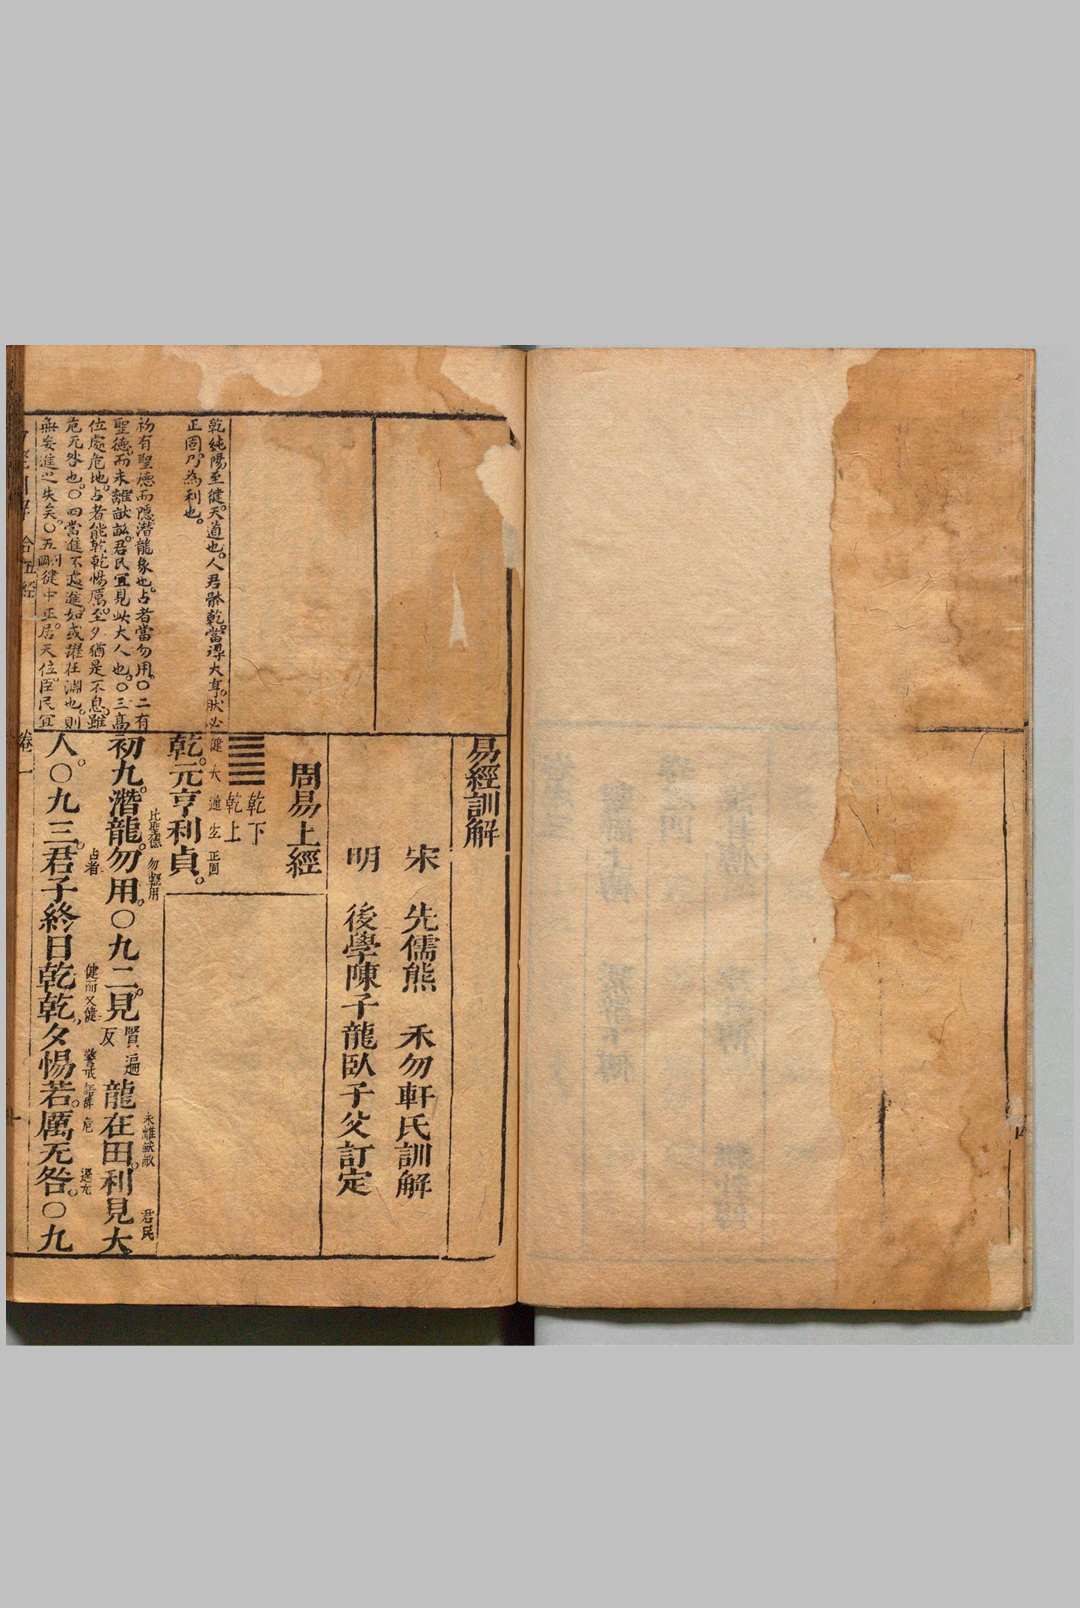 易經訓解
宋 先儒熊 禾勿軒氏訓解
明 後學陳子龍臥子父訂定
周易上經
乾下
乾上
乾純陽至健。天道也。人君體乾。當得大亨。然必
正固。乃為利也。
健 大 通 宜 正固
乾。元亨利貞。
初有聖德而隱潛龍象也。占者當勿用。〇二有
聖德。而未離畎畝。君民宜見此大人也。〇三高
位處危地。占者能乾乾惕厲。至夕猶是不息。雖
危无咎也。〇四當進不遽進。如或躍在淵也。則
無妄進之失矣。〇五剛健中正。居天位。臣民宜
比聖德 勿輕用
初九。潛龍勿用。〇九二。見賢遍反龍在田。利見大
未離畎畝 君民
人。〇九三。君子終日乾乾。夕惕若。厲无咎。〇九
占者 健而又健
卷一